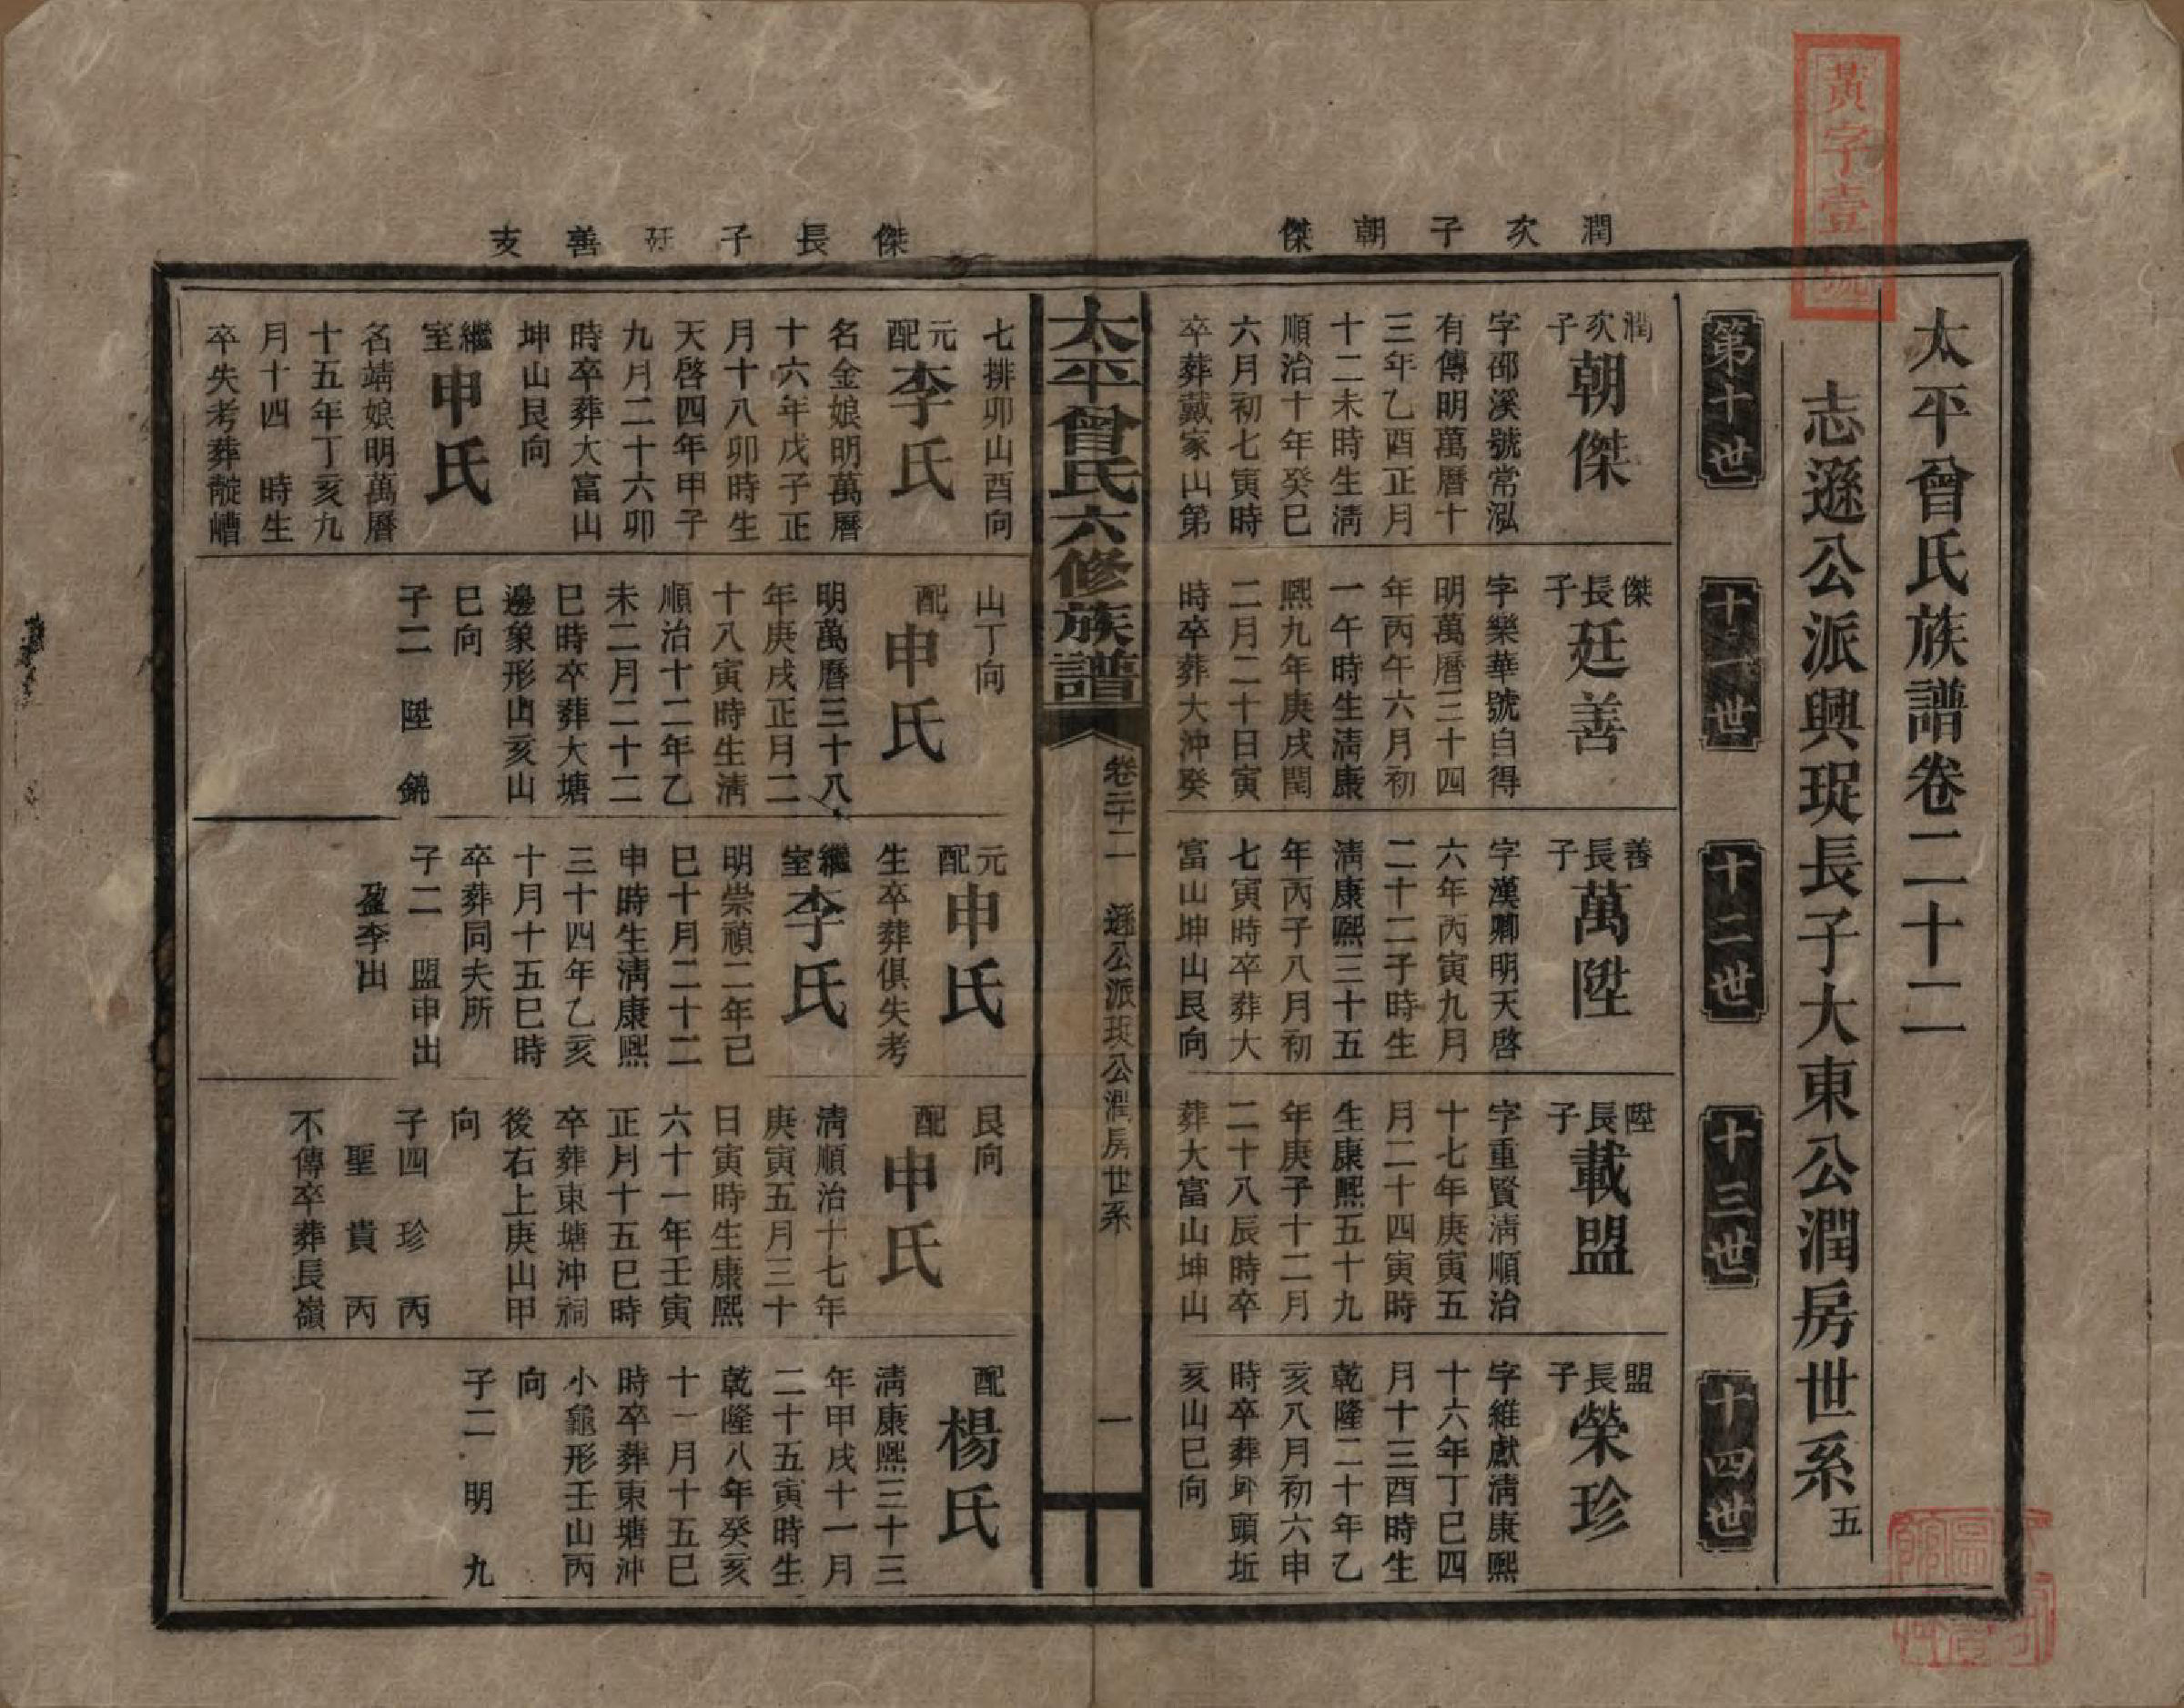 黃字壹號
太平曾氏族譜卷二十二
志遜公派興珽長子大東公潤房世系五
第十世
十一世
十二世
十三世
十四世
潤次子朝傑
潤次子
朝傑
字邵溪號常泓
有傳明萬曆十
三年乙酉正月
十二未時生清
順治十年癸巳
六月初七寅時
卒葬戴家山第
七排卯山酉向
元配
李氏
名金娘明萬曆
十六年戊子正
月十八卯時生
天啓四年甲子
九月二十六卯
時卒葬大富山
坤山艮向
繼室
申氏
名靖娘明萬曆
十五年丁亥九
月十四 時生
卒失考葬龍嶆
傑長子
廷善
字樂華號自得
明萬曆三十四
年丙午六月初
一午時生清康
熙九年庚戌閏
二月二十日寅
時卒葬大沖癸
山丁向
配
申氏
明萬曆三十八
年庚戌正月二
十八寅時生清
順治十二年乙
未二月二十二
巳時卒葬大塘
邊象形山亥山
巳向
子二 陞 錦
善長子
萬陞
字漢卿明天啓
六年丙寅九月
二十二子時生
清康熙三十五
年丙子八月初
七寅時卒葬大
富山坤山艮向
元配
申氏
生卒葬俱失考
繼室
李氏
明崇禎二年己
巳十月二十二
申時生清康熙
三十四年乙亥
十月十五巳時
卒葬同夫所
子二 盟申出
盈李出
陞長子
載盟
字重賢清順治
十七年庚寅五
月二十四寅時
生康熙五十九
年庚子十二月
二十八辰時卒
葬大富山坤山
艮向
配
申氏
清順治十七年
庚寅五月三十
日寅時生康熙
六十一年壬寅
正月十五巳時
卒葬東塘沖祠
後右上庚山甲
向
子四 珍 丙
聖 貴 丙
不傳卒葬長嶺
盟長子
榮珍
字維獻清康熙
十六年丁巳四
月十三酉時生
乾隆二十年乙
亥八月初六申
時卒葬 頭坵
亥山巳向
配
楊氏
清康熙三十三
年甲戌十一月
二十五寅時生
乾隆八年癸亥
十一月十五巳
時卒葬東塘沖
小龜形壬山丙
向
子二 明 九
太平曾氏六修族譜
卷二十二 遜公派珽公潤房世系
一
傑長子廷善支